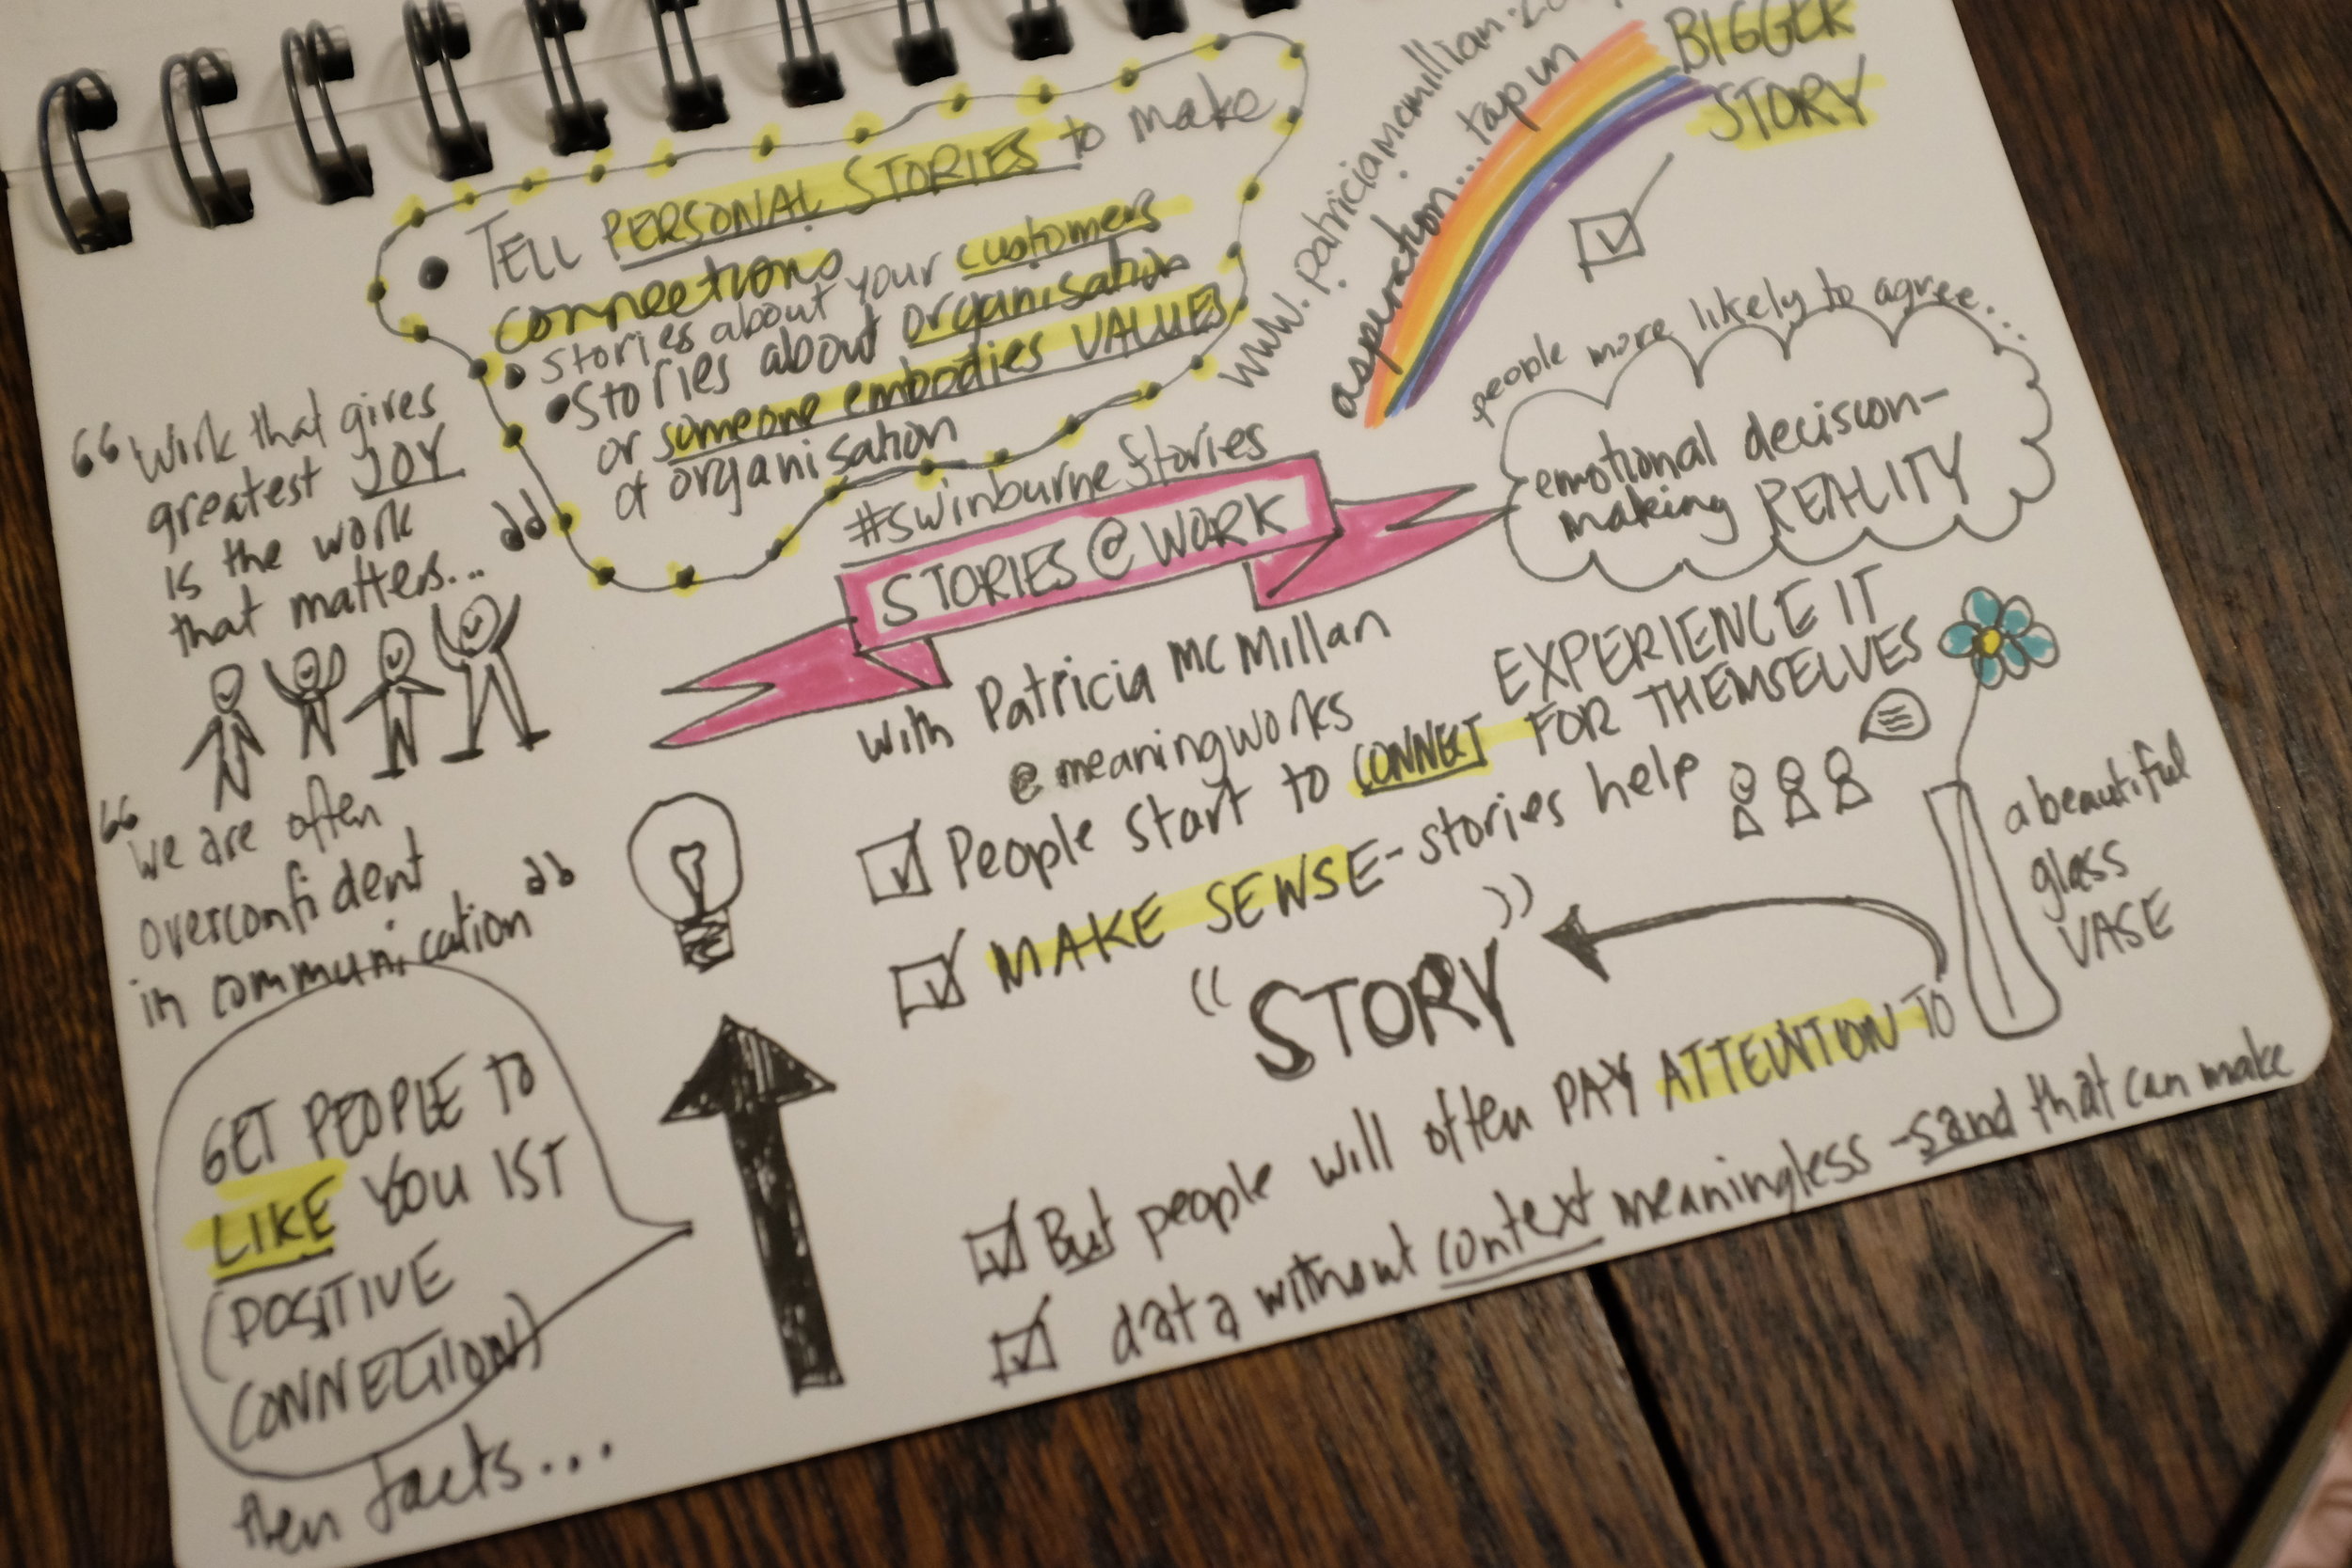 • TELL PERSONAL STORIES to make
connections
• stories about your customers
• Stories about organisation
or someone embodies VALUES
of organisation
www.patriciamcmillian.
aspiration... tap in
BIGGER
STORY
people more likely to agree...
emotional decision-
making REALITY
"Work that gives
greatest JOY
is the work
that matters..."
#swinburnestories
STORIES @ WORK
with Patricia McMillan
@meaningworks
EXPERIENCE IT
People start to CONNECT FOR THEMSELVES
MAKE SENSE - stories help
"STORY"
a beautiful
glass
VASE
But people will often PAY ATTENTION TO
data without context meaningless - sand that can make
"we are often
overconfident
in communication"
GET PEOPLE TO
LIKE YOU 1ST
(POSITIVE
CONNECTION)
then facts...